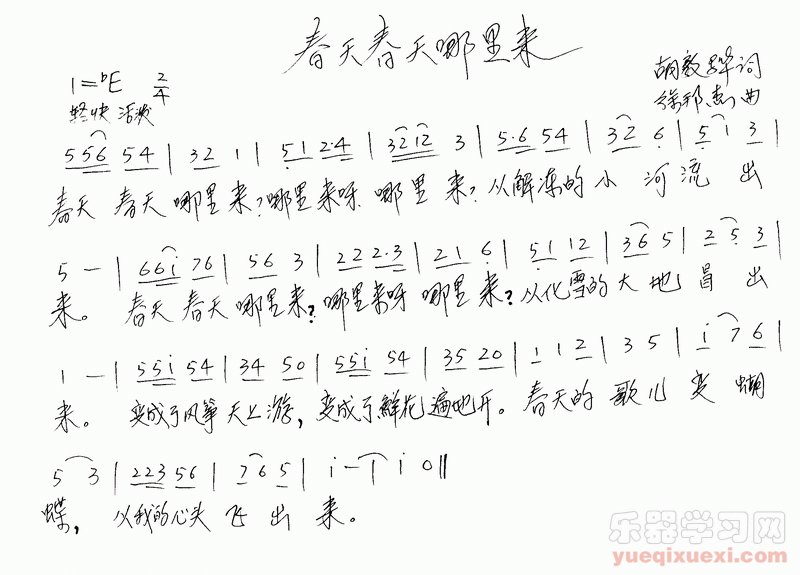 春天春天哪里来
1=♭E 2/4
胡敦骅词
轻快 活泼
徐邦杰曲
556 54 | 32 1 | 51 2·4 | 3212 3 | 5·6 54 | 32 6 | 5 1 3 |
春天 春天 哪里来?哪里来呀 哪里 来?从解冻的小 河流 出
5 — | 66i 76 | 56 3 | 22 2·3 | 21 6 | 51 12 | 36 5 | 2 5 3 |
来。 春天 春天 哪里来?哪里来呀 哪里 来?从化雪的大 地 冒 出
1 — | 55i 54 | 34 50 | 55i 54 | 35 20 | 1 1 2 | 3 5 | i 7 6 |
来。 变成了风筝 天上游,变成了鲜花遍地开。春天的 歌儿 变 蝴
5 3 | 223 56 | 76 5 | i — | i 0 ‖
蝶, 从我的心头 飞 出 来。
乐器学习网
yueqixuexi.com